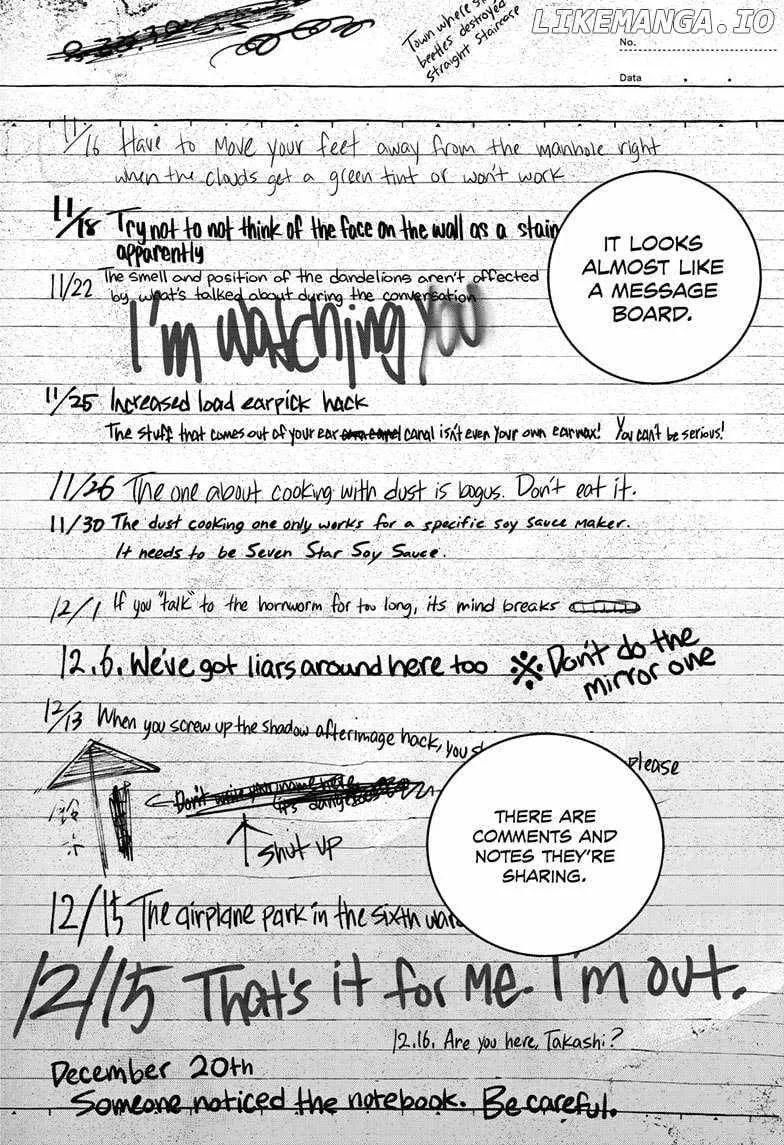 LIKEMANGA.IO
Town where
beetles destroyed
straight staircase
No.
Data
11/16 Have to move your feet away from the manhole right
when the clouds get a green tint or won't work
11/18 Try not to not think of the face on the wall as a stain
apparently
IT LOOKS
ALMOST LIKE
A MESSAGE
BOARD.
11/22 The smell and position of the dandelions aren't affected
by what's talked about during the conversation
I'm watching you
11/25 Increased load earpick hack
The stuff that comes out of your ear canal isn't even your own earwax! You can't be serious!
11/26 The one about cooking with dust is bogus. Don't eat it.
11/30 The dust cooking one only works for a specific soy sauce maker.
It needs to be Seven Star Soy Sauce.
12/1 If you "talk" to the hornworm for too long, its mind breaks
12.6. We've got liars around here too ※ Don't do the
mirror one
12/13 When you screw up the shadow afterimage hack, you
please
Don't write your name here
it's dangerous
shut up
THERE ARE
COMMENTS AND
NOTES THEY'RE
SHARING.
12/15 The airplane park in the sixth ward
12/15 That's it for me. I'm out.
12.16. Are you here, Takashi?
December 20th
Someone noticed the notebook. Be careful.